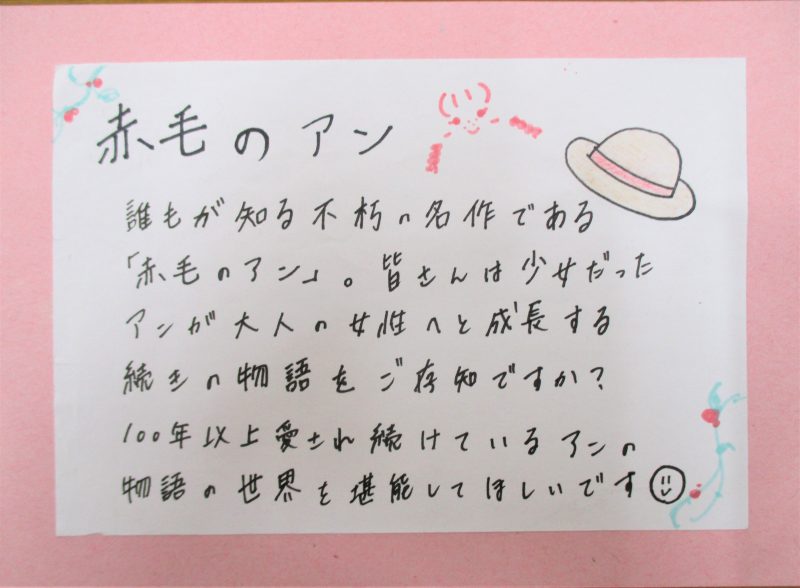 赤毛のアン
誰もが知る不朽の名作である
「赤毛のアン」。皆さんは少女だった
アンが大人の女性へと成長する
続きの物語をご存知ですか？
100年以上愛され続けているアンの
物語の世界を堪能してほしいです